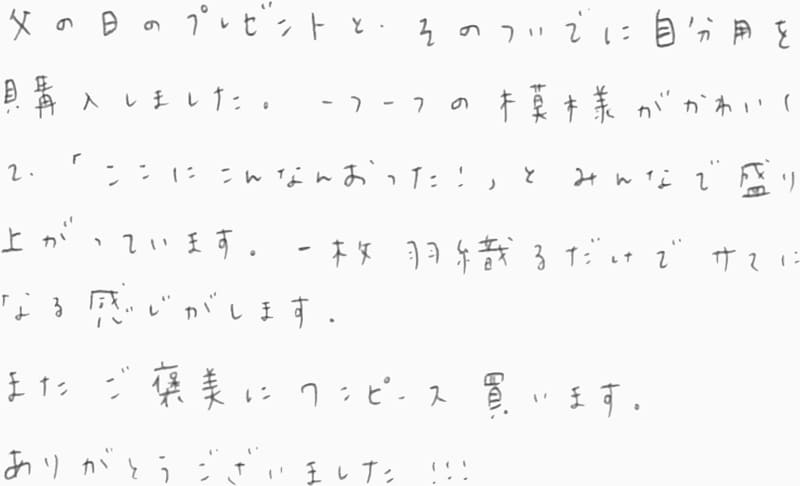 父の日のプレゼントと、そのついでに自分用を
購入しました。一つ一つの模様がかわいく
て、「ここにこんなんおった!」とみんなで盛り
上がっています。一枚羽織るだけでサマに
なる感じがします。
またご褒美にワンピース買います。
ありがとうございました!!!